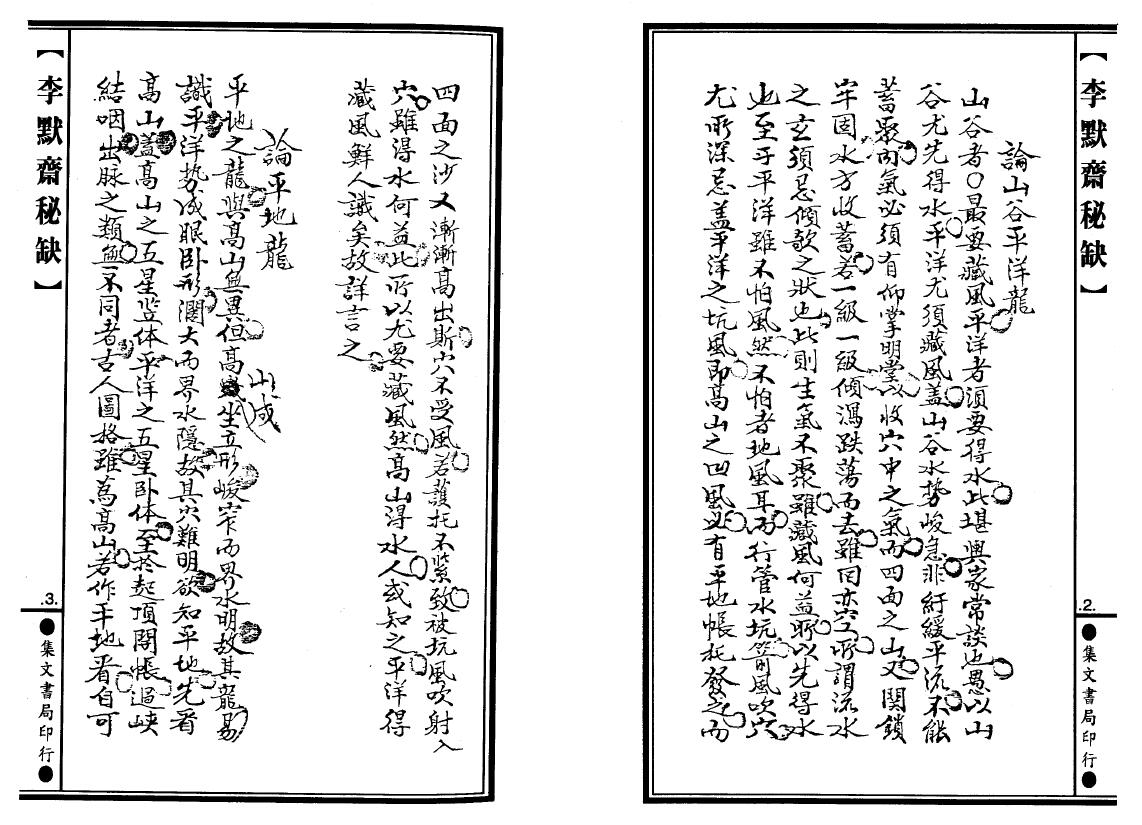 【李默齋秘缺】
論山谷平洋龍
山谷者○最要藏風平洋者須要得水此堪輿家常談也愚以山
谷尤先得水平洋尤須藏風盖山谷水势峻急非紆緩平流不能
蓄聚內氣必須有仰掌明堂以收穴中之氣而四面之山又関鎖
牢固水方收蓄若一級一級傾瀉跌蕩而去雖囬亦空所謂流水
之玄須忌傾欹之狀也此則生氣不聚雖藏風何益所以先得水
也至于平洋雖不怕風然不怕者地風耳而行管水坑箭風吹穴
尤所深忌盖平洋之坑風即高山之凹風必有平地帳托發之而
.2.
●集文書局印行●
四面之沙又漸漸高出斯穴不受風若護托不紧致被坑風吹射入
穴雖得水何益此所以尤要藏風然高山得水人或知之平洋得
藏風鮮人識矣故詳言之
論平地龍
平地之龍與高山無異但高山成坐立形峻窄而界水明故其龍易
識平洋势成眠卧形濶大而界水隱故其穴難明欲知平地先看
高山盖高山之五星竖体平洋之五星卧体至於起頂開帳過峡
結咽出脉之類無不同者古人圖格雖為高山若作平地看自可
【李默齋秘缺】
.3.
●集文書局印行●